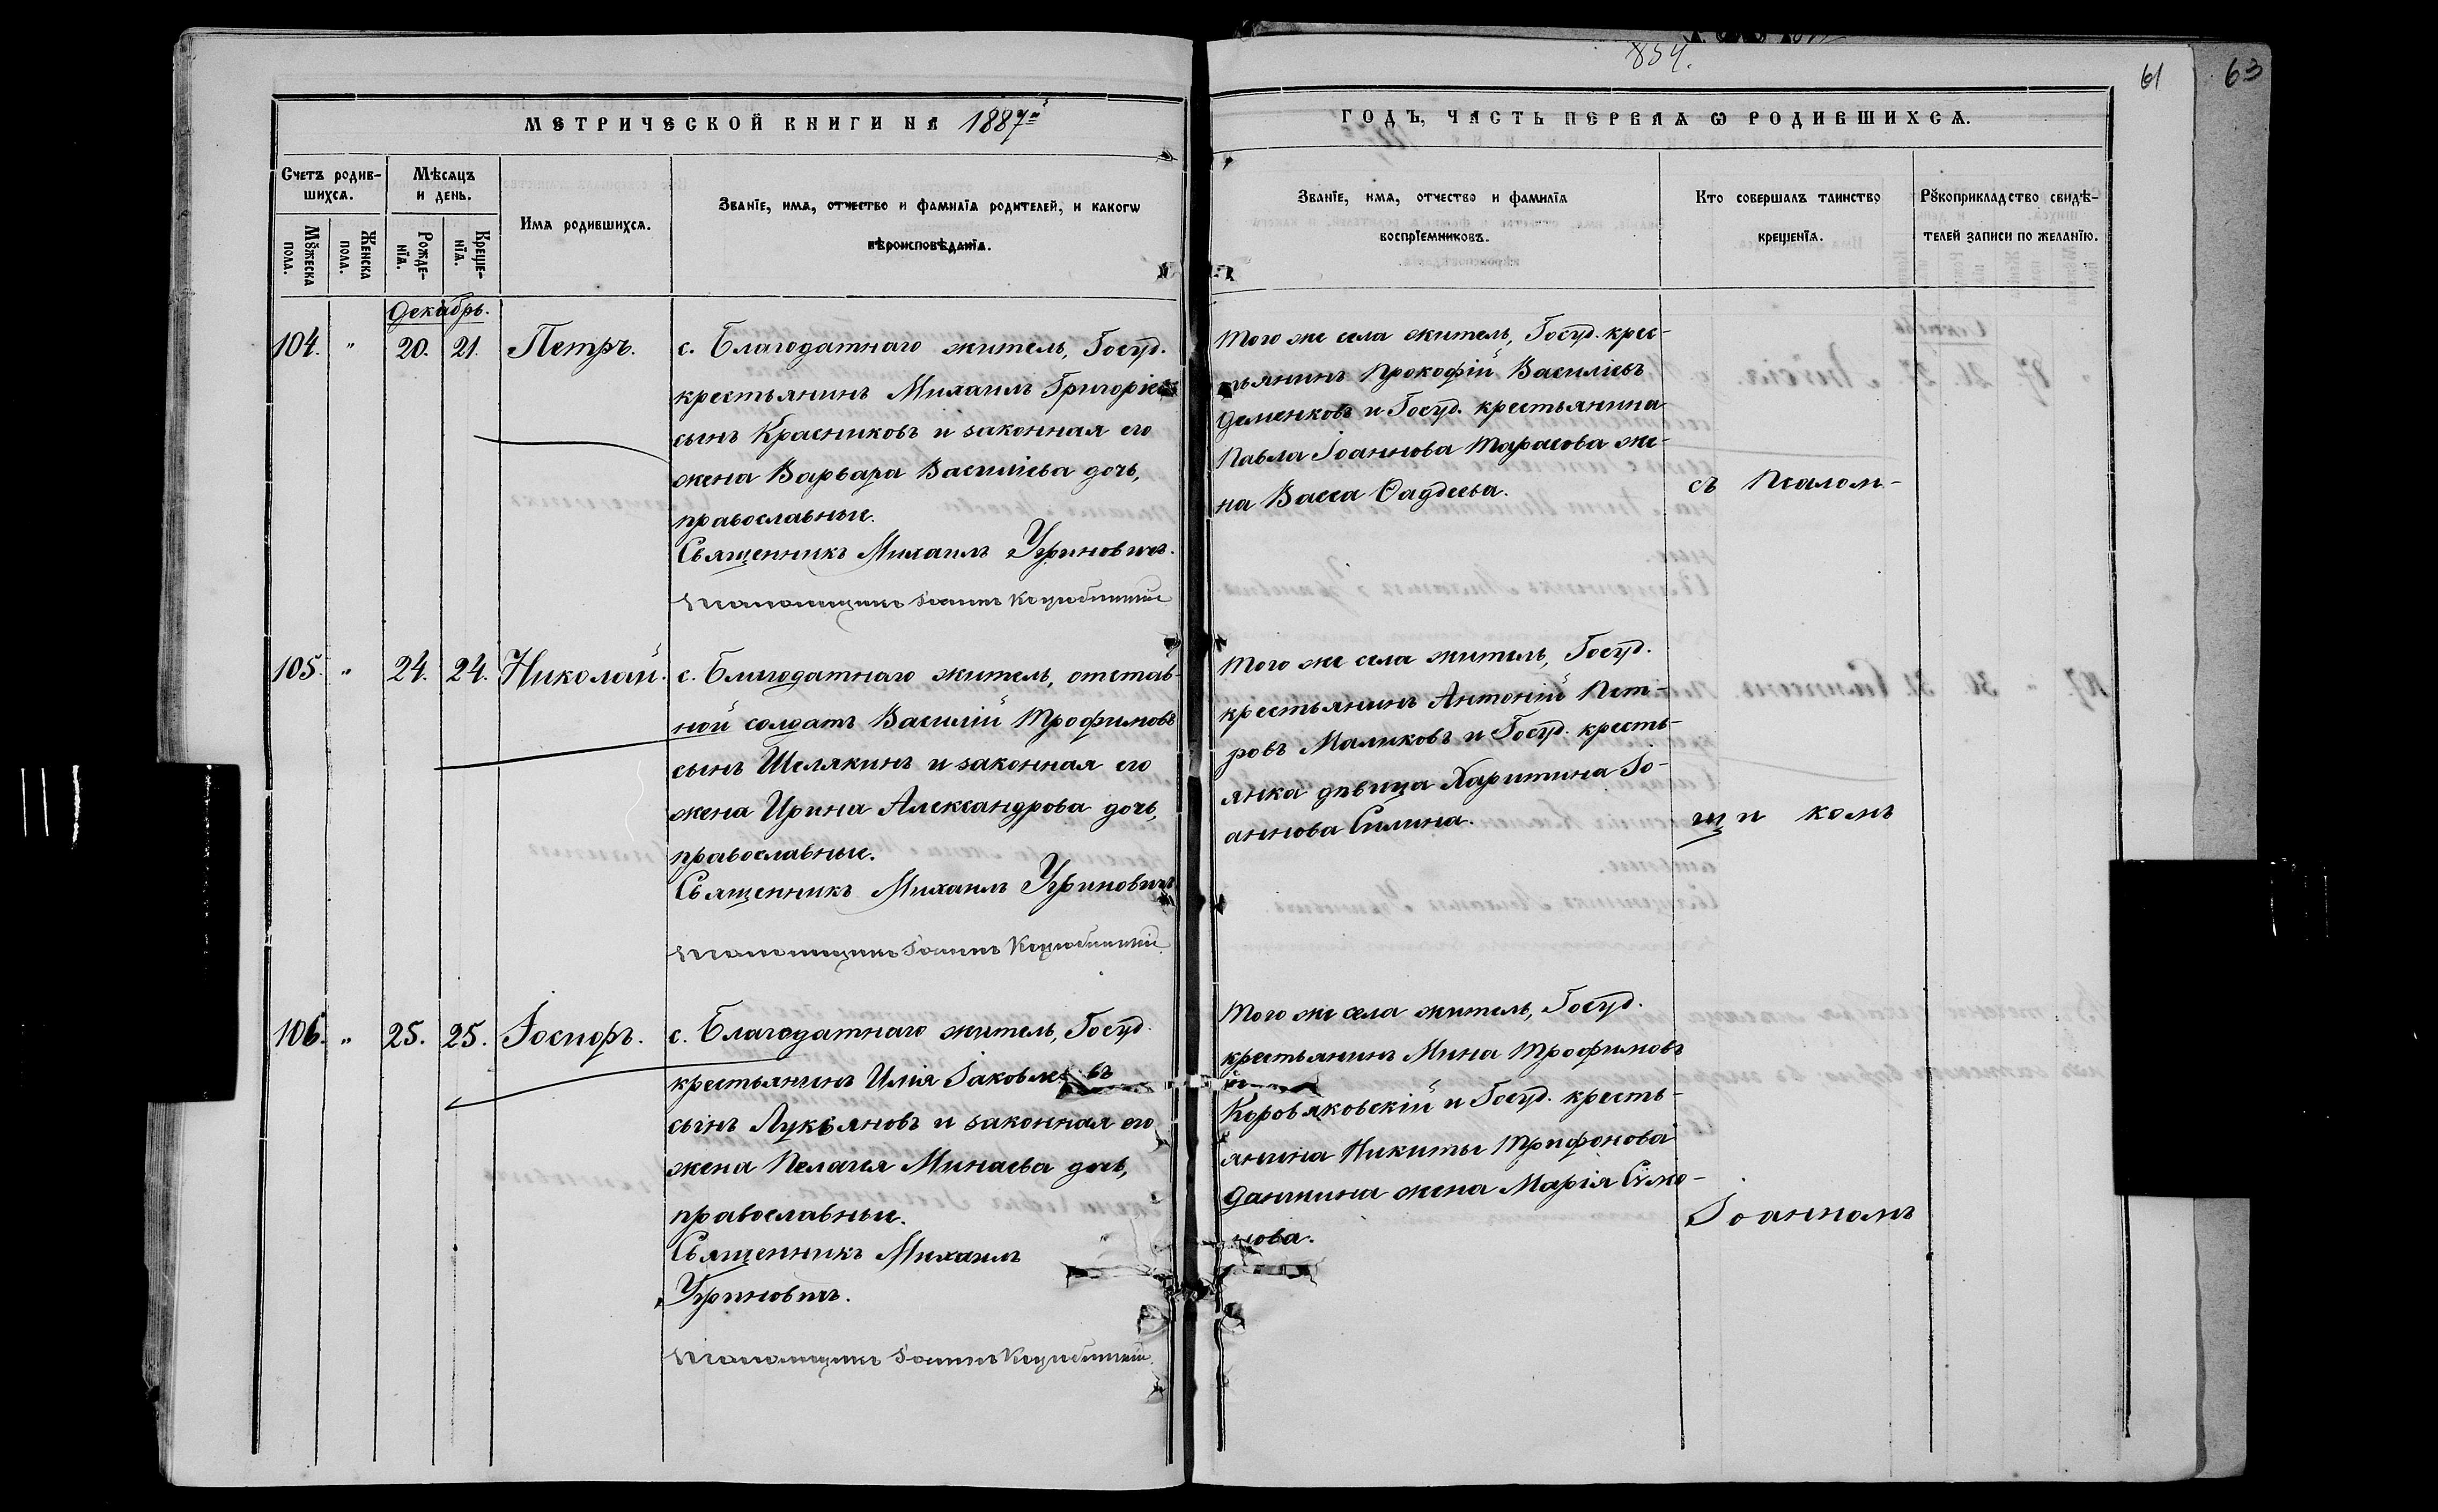 854.
61
63
МЕТРИЧЕСКОЙ КНИГИ НА 1887й
ГОДЪ, ЧАСТЬ ПЕРВАЯ Ѡ РОДИВШИХСѦ.
Счетъ родив-
шихсѧ.
Мѣсѧцъ
и день.
Мꙋжеска
пола.
Женска
пола.
Рожде-
нїѧ.
Креще-
нїѧ.
Имѧ родившихсѧ.
Званїе, имѧ, отчество и фамилїѧ родителей, и какогѡ
вѣроисповѣданїѧ.
Званїе, имѧ, отчество и фамилїѧ
воспрїемниковъ.
Кто совершалъ таинство
крещенїѧ.
Рꙋкоприкладство свидѣ-
телей записи по желанїю.
Декабрь.
104. " 20. 21. Петръ.
с. Благодатнаго житель, Госуд.
крестьянинъ Михаилъ Григоріевъ
сынъ Красниковъ и законная его
жена Варвара Васильіева дочь,
православные.
Священникъ Михаилъ Угриновичъ.
Псаломщикъ Іоаннъ Коцюбинскій
Того же села житель, Госуд. крес-
тьянинъ Прокофій Василіевъ
Деменковъ и Госуд. крестьянина
Павла Іоаннова Тарасова же-
на Васса Фаддеева.
съ Псалом-
105. " 24. 24. Николай.
с. Благодатнаго житель, отстав-
ной солдатъ Василій Трофимовъ
сынъ Шелякинъ и законная его
жена Ирина Александрова дочь,
православные.
Священникъ Михаилъ Угриновичъ
Псаломщикъ Іоаннъ Коцюбинскій
Того же села житель, Госуд.
крестьянинъ Антоній Пет-
ровъ Маликовъ и Госуд. кресть-
янка дѣвица Харитина Іо-
аннова Силина.
щи комъ
106. " 25. 25. Іосифъ.
с. Благодатнаго житель, Госуд.
крестьянинъ Илія Іаковлевъ
сынъ Лукьяновъ и законная его
жена Пелагея Минаева дочь,
православные.
Священникъ Михаилъ
Угриновичъ.
Псаломщикъ Іоаннъ Коцюбинскій.
Того же села житель, Госуд.
крестьянинъ Мина Трофимовъ
Коровяковскій и Госуд. кресть-
янина Никиты Трифонова
Даншина жена Марія Сѵмо-
нова.
Іоанномъ